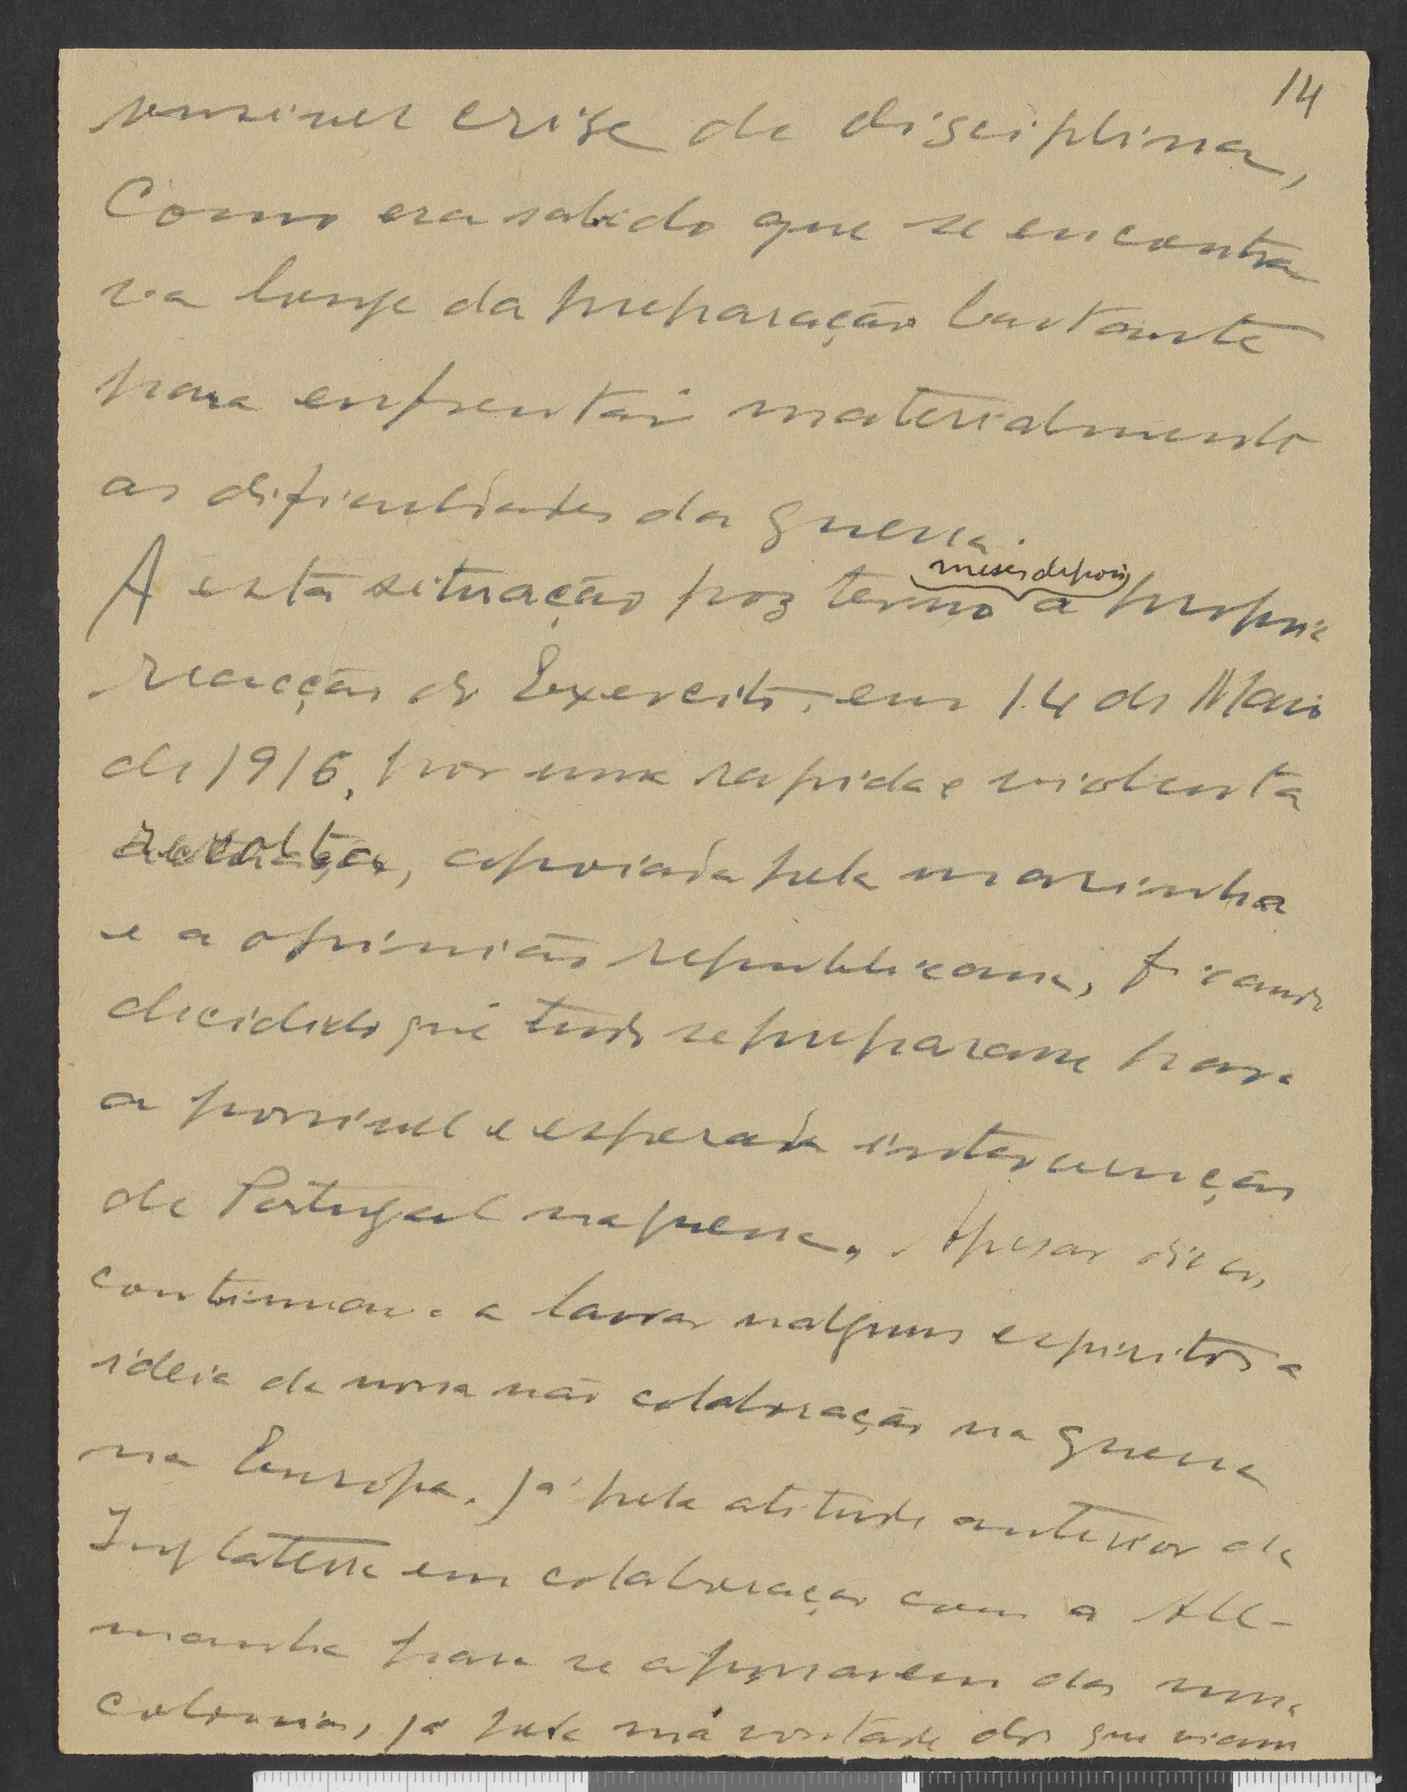 14
crise de disciplina,
Como era sabido que se encontra
va longe da preparação bastante
para enfrentar materialmente
as dificuldades da guerra.
meses depois
A esta situação poz termo a propria
reacção do Exercito, em 14 de Maio
de 1915, por uma rapida e violenta
revolta, apoiada pela marinha
e a opinião republicana, ficando
decidido que tudo se preparasse para
a possivel e esperada intervenção
de Portugal na guerra. Apesar disso,
continuava a lavrar nalguns espiritos a
ideia da nossa não colaboração na guerra
na Europa. Já pela atitude anterior da
Inglaterra em colaboração com a Alle-
manha para se apossarem das nossas
colonias, já pela má vontade dos que viam